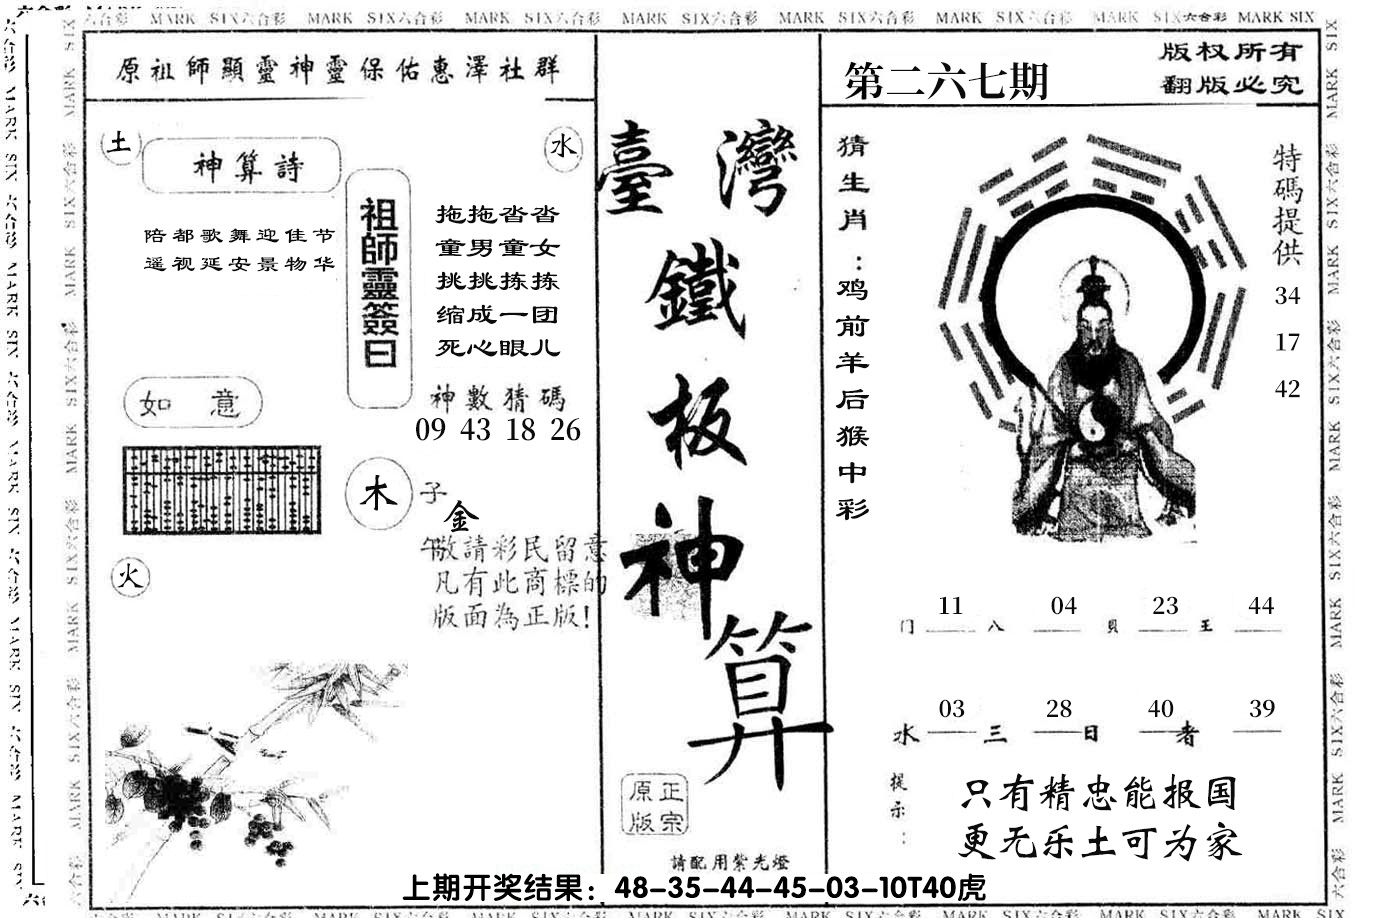 MARK SIX六合彩 MARK SIX六合彩 MARK SIX六合彩 MARK SIX六合彩 MARK SIX六合彩 MARK SIX六合彩 MARK SIX六合彩 MARK SIX六合彩 MARK SIX
原祖師顯靈神靈保佑惠澤社群
土
神算詩
水
陪都歌舞迎佳节
遥视延安景物华
祖師靈簽曰
拖拖沓沓
童男童女
挑挑拣拣
缩成一团
死心眼儿
如意
神數猜碼
09 43 18 26
木
子
金
午
火
敬請彩民留意
凡有此商標的
版面為正版!
臺灣
鐵
板
神
算
正宗
原版
請配用紫光燈
第二六七期
版权所有
翻版必究
猜生肖：鸡前羊后猴中彩
特碼提供
34
17
42
11 04 23 44
门 八 貝 王
03 28 40 39
水 三 日 者
提示：
只有精忠能报国
更无乐土可为家
上期开奖结果：48-35-44-45-03-10T40虎